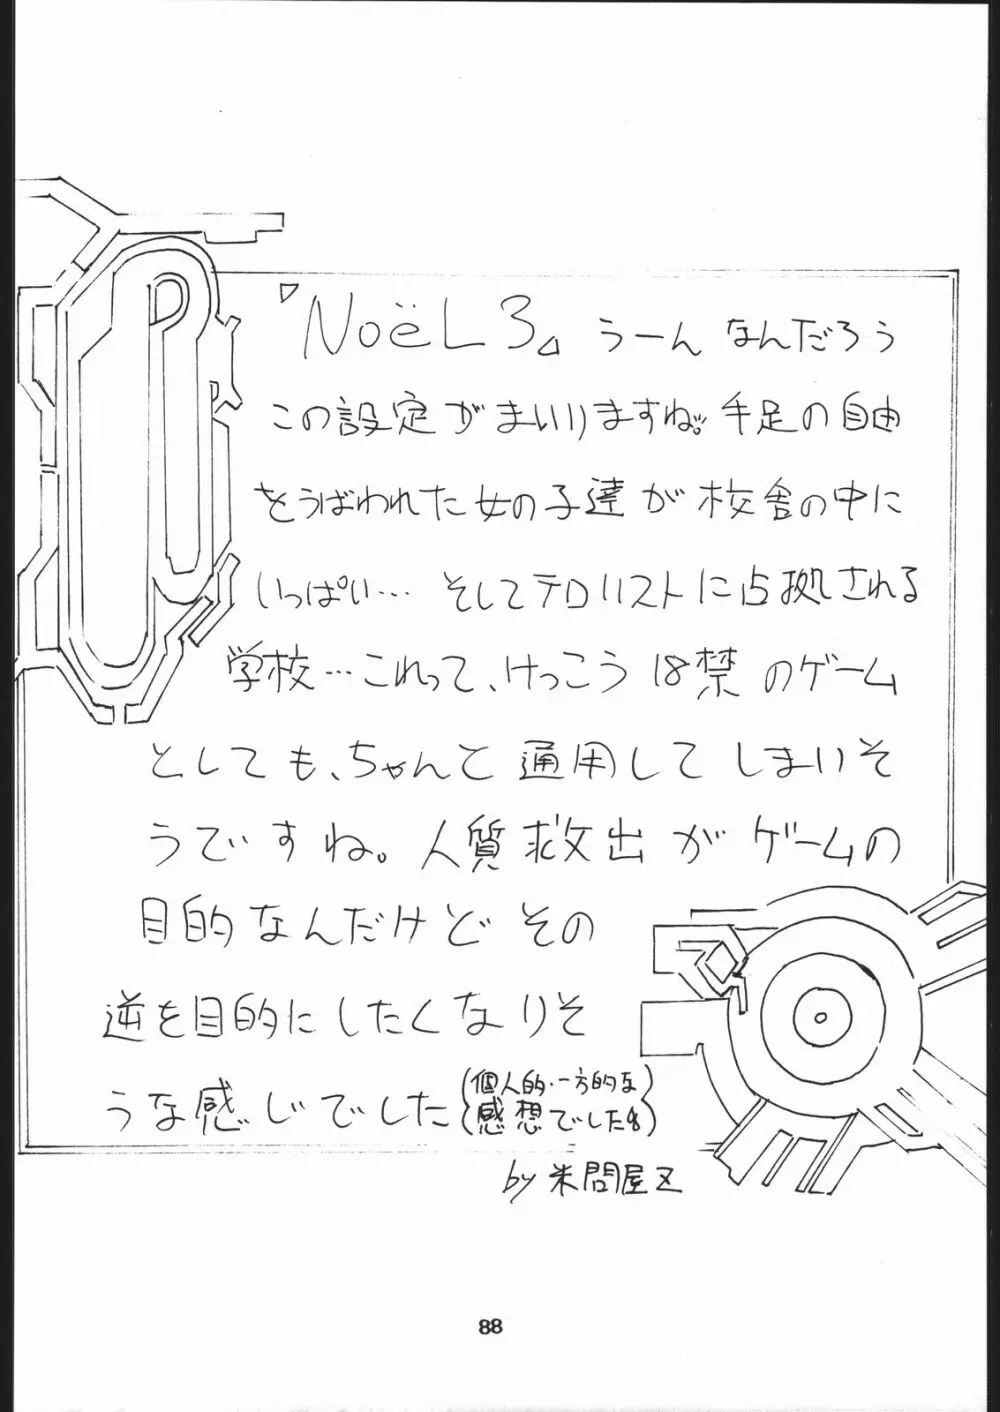 『NoëL 3』うーん なんだろう
この設定がまいりますね。手足の自由
をうばわれた女の子達が校舎の中に
いっぱい… そしてテロリストに占拠される
学校…これって、けっこう18禁のゲーム
としても、ちゃんと通用してしまいそ
うですね。人質救出がゲームの
目的なんだけどその
逆を目的にしたくなりそ
うな感じでした
(個人的・一方的な
感想でした。)
by 米問屋Z
88